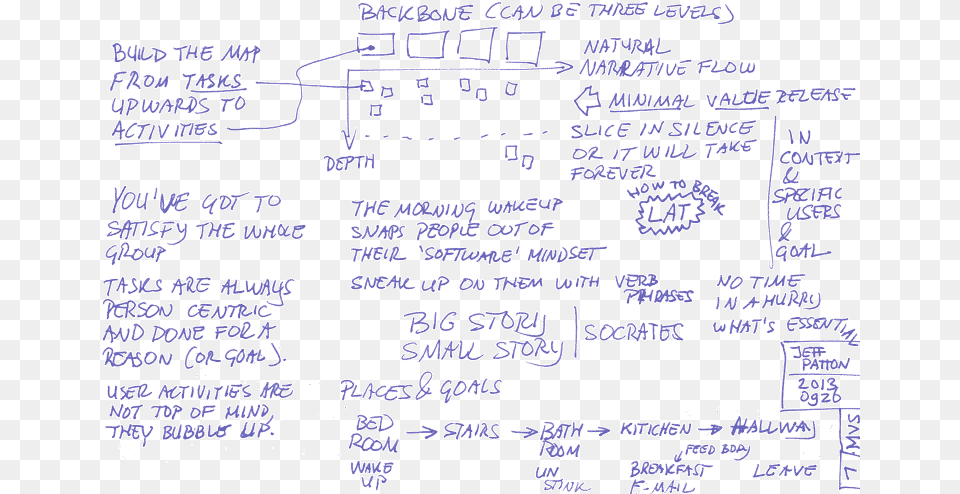 BACKBONE (CAN BE THREE LEVELS)
BUILD THE MAP
FROM TASKS
UPWARDS TO
ACTIVITIES
NATURAL
NARRATIVE FLOW
MINIMAL VALUE RELEASE
DEPTH
SLICE IN SILENCE
OR IT WILL TAKE
FOREVER
IN
CONTEXT
&
SPECIFIC
USERS
&
GOAL
HOW TO BREAK
LAT
YOU'VE GOT TO
SATISFY THE WHOLE
GROUP
THE MORNING WAKEUP
SNAPS PEOPLE OUT OF
THEIR 'SOFTWARE' MINDSET
SNEAK UP ON THEM WITH VERB
PHRASES
NO TIME
IN A HURRY
WHAT'S ESSENTIAL
TASKS ARE ALWAYS
PERSON CENTRIC
AND DONE FOR A
REASON (OR GOAL).
BIG STORY
SMALL STORY
SOCRATES
JEFF
PATTON
2013
0920
USER ACTIVITIES ARE
NOT TOP OF MIND,
THEY BUBBLE UP.
PLACES & GOALS
BED
ROOM
WAKE
UP
STAIRS
BATH
ROOM
UN
STINK
KITCHEN
FEED BODY
BREAKFAST
E-MAIL
HALLWAY
LEAVE